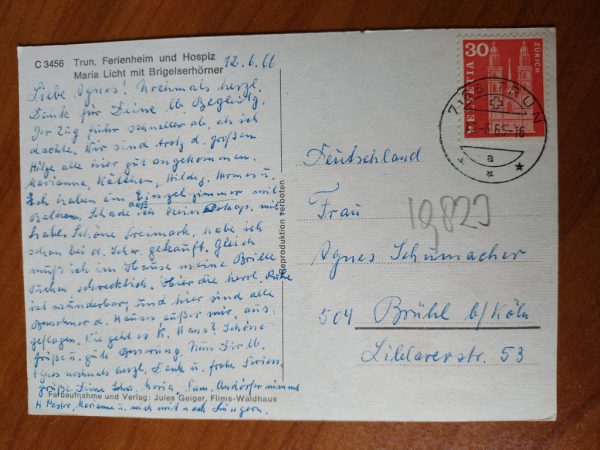 C 3456 Trun, Ferienheim und Hospiz
Maria Licht mit Brigelserhörner
12.6.66
Liebe Agnes! Nochmals herzl.
Dank für Deine lb. Begleitg.
Der Zug fuhr schneller ab, als ich
dachte. Wir sind trotz d. großen
Hitze alle hier gut angekommen.
Marianne, Käthchen, Hildeg. u.
Ich haben ein Einzelzimmer mit
Balkon. Schade ich kein mit
habe. Schöne Freimark. habe ich
schon bei d. Schw. gekauft. Gleich
muß ich im Hause meine Brille
suchen schrecklich. Hier die herrl. Ruhe
ist wunderbar, und hier sind alle
Bewohner d. Hauses außer mir, aus-
geflogen. Wie geht es K. Hans? Schöne
Grüße u. gute Besserung. Nun Dir lb.
Agnes nochmals herzl. Dank u. frohe Ferien
grüße Deine Schw. Maria. Fam. nimmt
H Pastor, Marianne u. mich mit nach Lungern.
Farbaufnahme und Verlag: Jules Geiger, Flims-Waldhaus
Reproduktion verboten
30
HELVETIA
ZÜRICH
TRUN
a
Deutschland
19823
Frau
Agnes Schumacher
504 Brühl b/Köln
Liblarerstr. 53